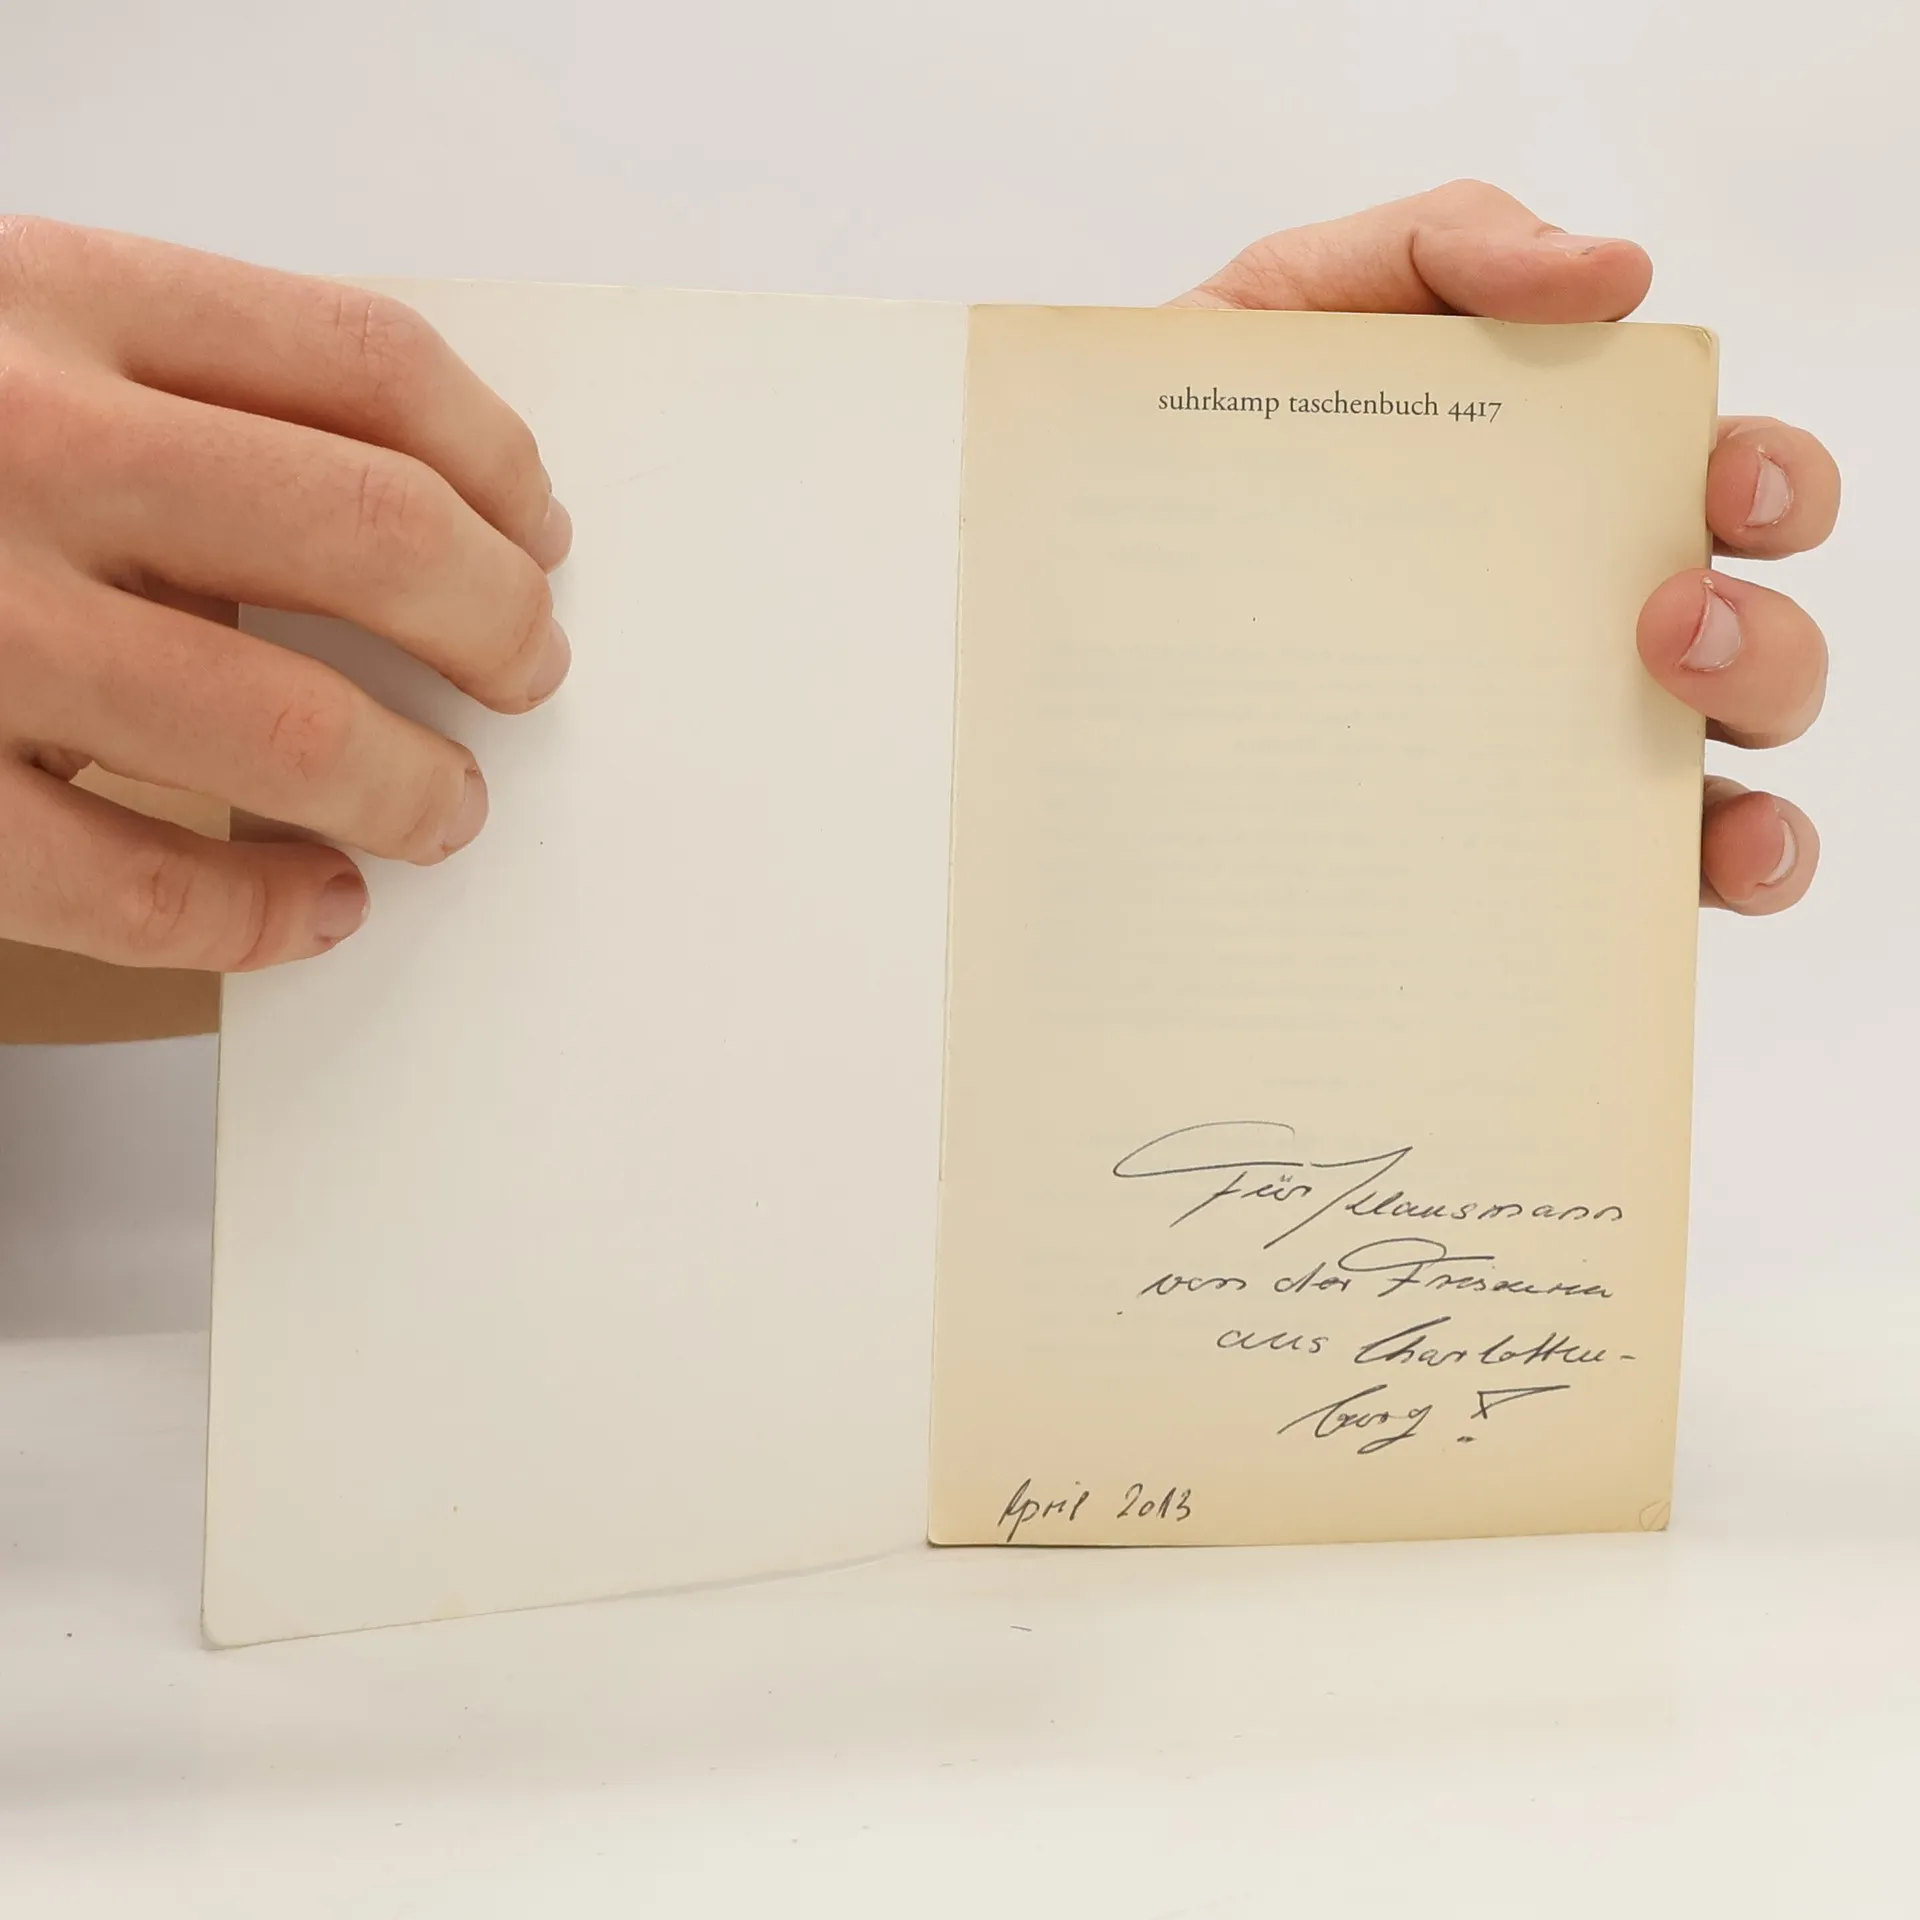 suhrkamp taschenbuch 4417
Für Klausmann
von der Friseurin
aus Charlotten-
burg !
April 2013